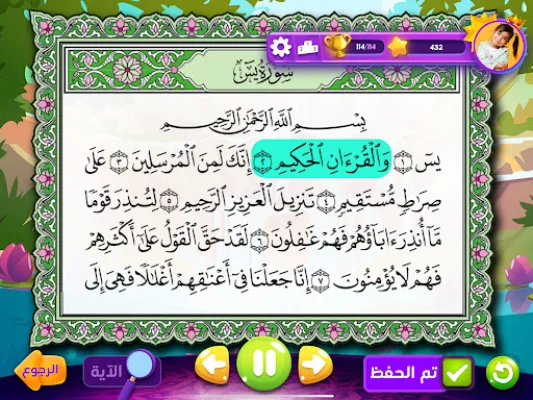 114/114
432
سورة يس
بِسْمِ ٱللَّهِ ٱلرَّحْمَٰنِ ٱلرَّحِيمِ
يسٓ ١ وَٱلْقُرْءَانِ ٱلْحَكِيمِ ٢ إِنَّكَ لَمِنَ ٱلْمُرْسَلِينَ ٣ عَلَىٰ
صِرَٰطٍ مُّسْتَقِيمٍ ٤ تَنزِيلَ ٱلْعَزِيزِ ٱلرَّحِيمِ ٥ لِتُنذِرَ قَوْمًا
مَّآ أُنذِرَ ءَابَآؤُهُمْ فَهُمْ غَٰفِلُونَ ٦ لَقَدْ حَقَّ ٱلْقَوْلُ عَلَىٰٓ أَكْثَرِهِمْ
فَهُمْ لَا يُؤْمِنُونَ ٧ إِنَّا جَعَلْنَا فِىٓ أَعْنَٰقِهِمْ أَغْلَٰلًا فَهِىَ إِلَى
الرجوع
الآية
تم الحفظ